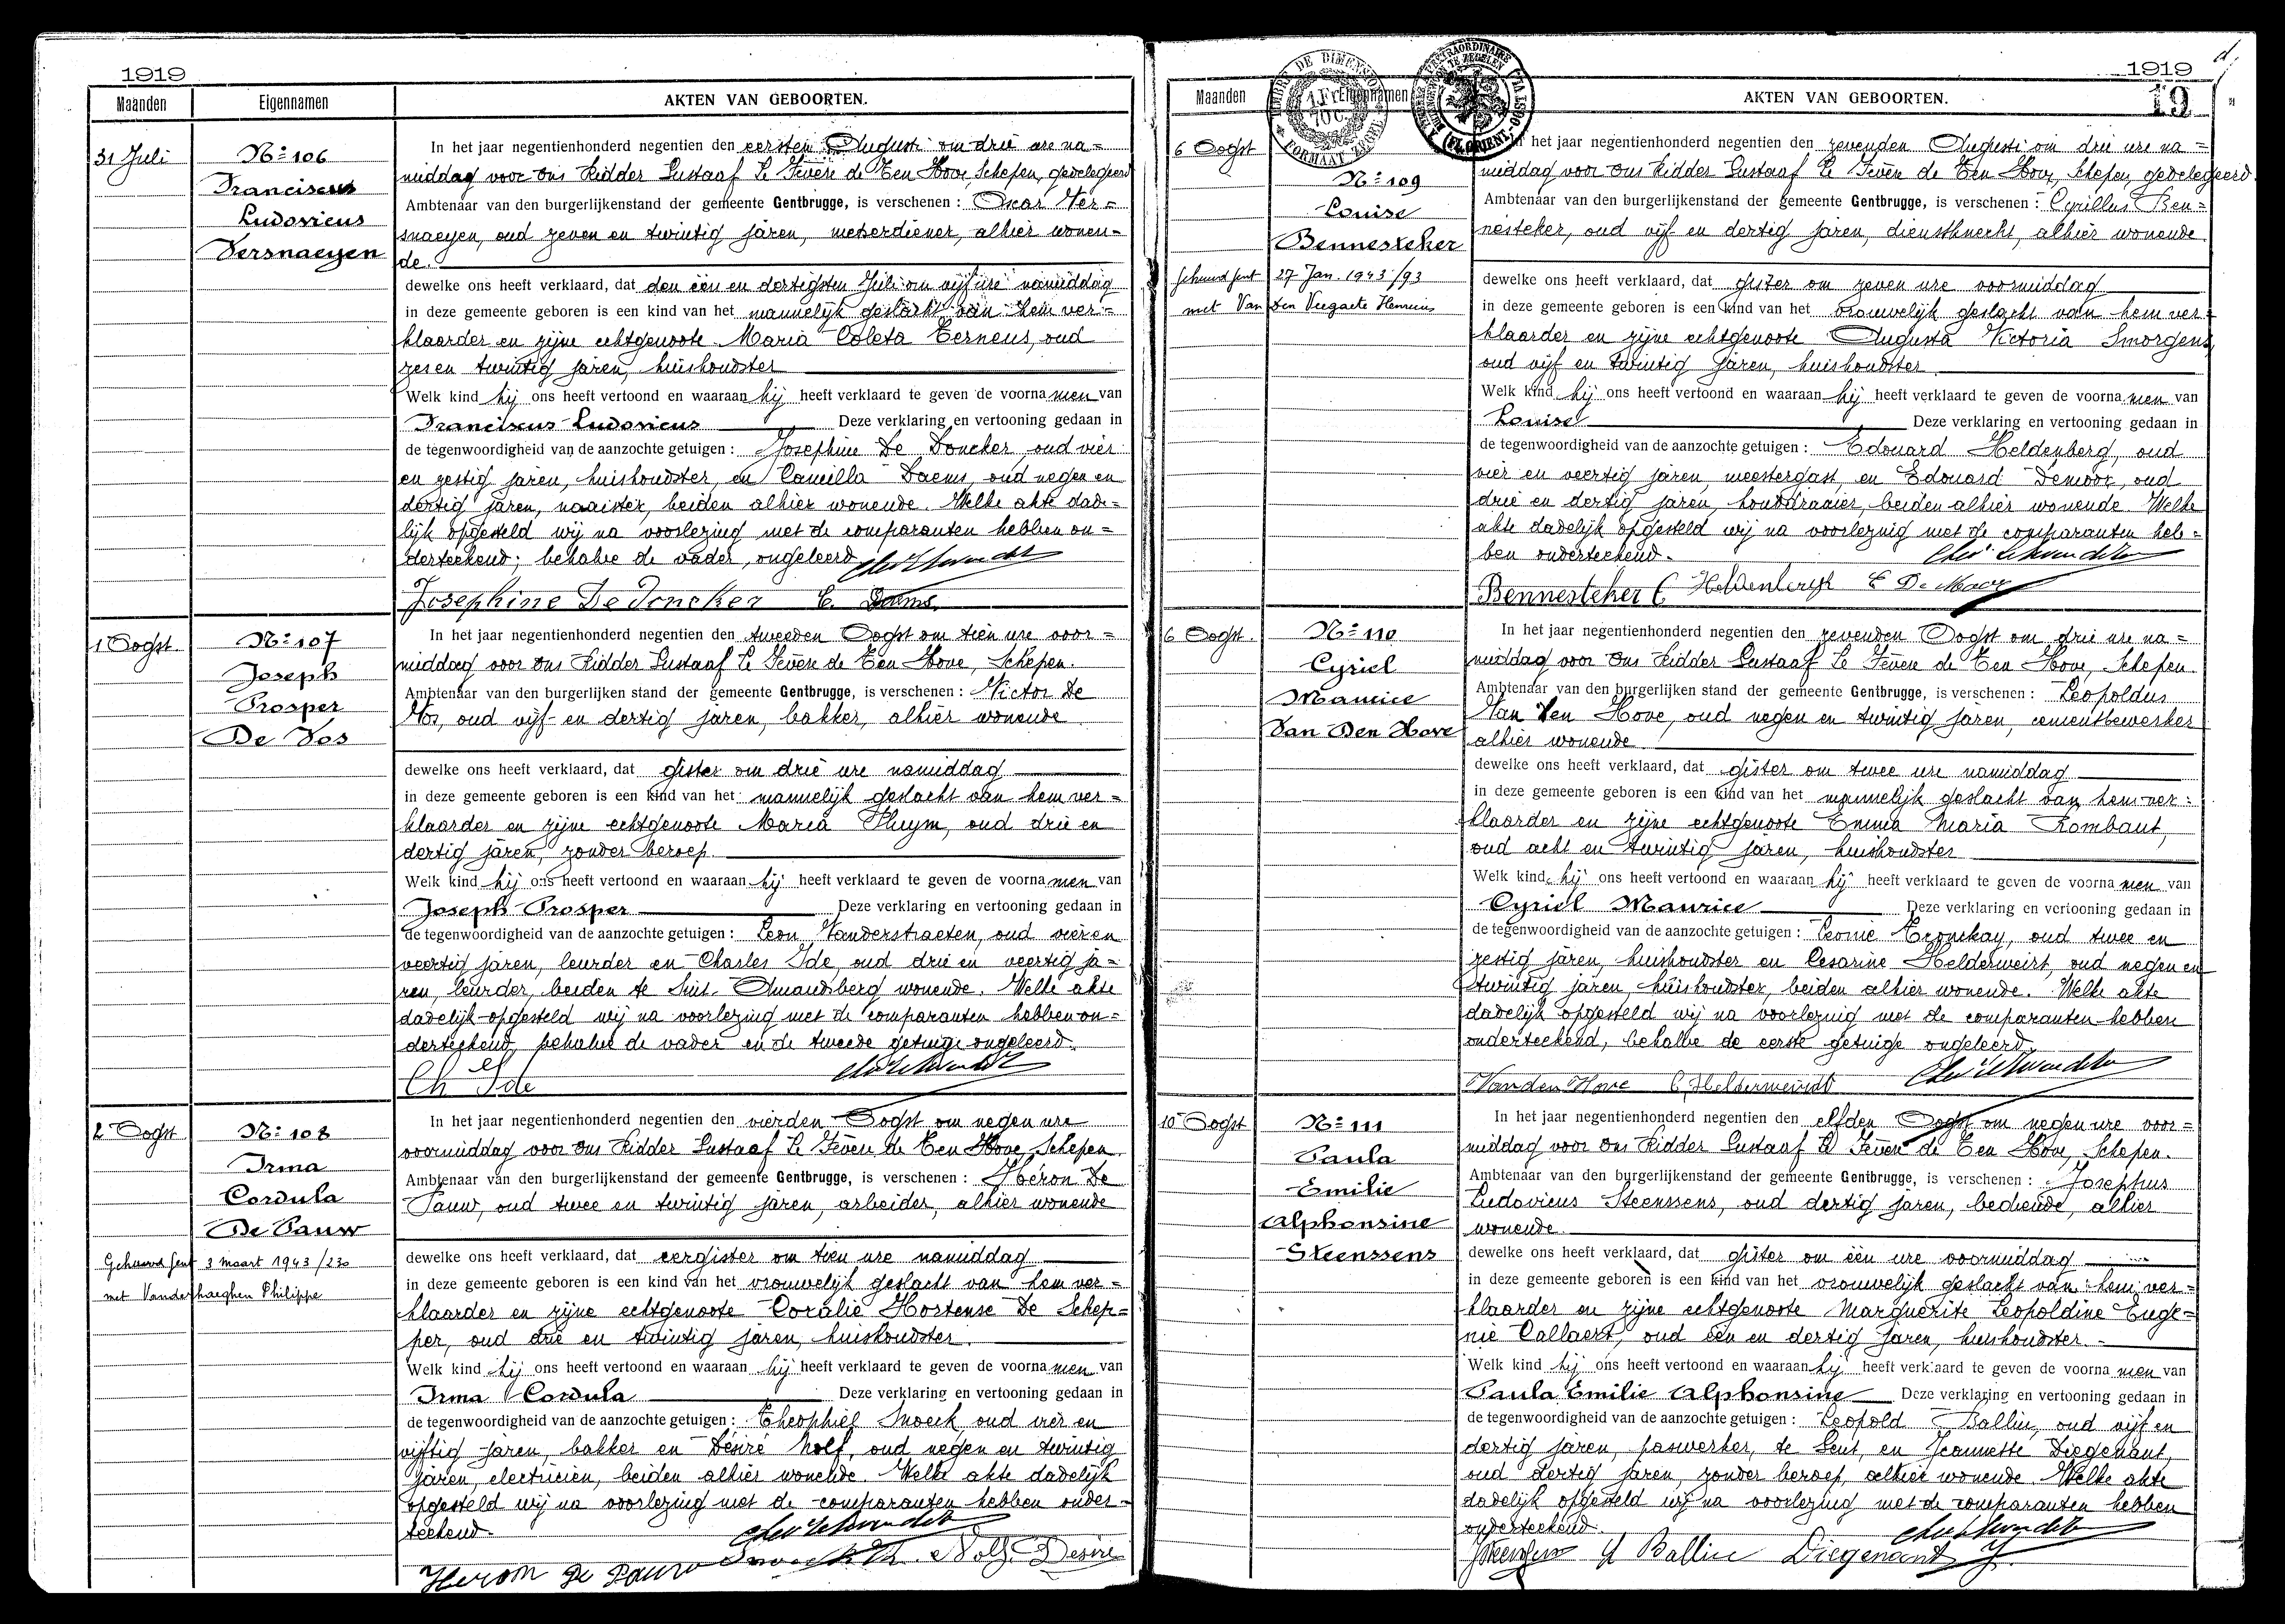 1919
Maanden Eigennamen AKTEN VAN GEBOORTEN.
31 Juli
Nº 106
Franciscus
Ludovicus
Versnaeyen
In het jaar negentienhonderd negentien den eersten Augusti om drie ure na=
middag voor Ons Ridder Gustaaf Le Fevère de Ten Hove, Schepen, gedelegeerd
Ambtenaar van den burgerlijkenstand der gemeente Gentbrugge, is verschenen : Oscar Ver=
snaeyen, oud zeven en twintig jaren, metserdiener, alhier wonen-
de.
dewelke ons heeft verklaard, dat den één en dertigsten Juli om vijf ure namiddag
in deze gemeente geboren is een kind van het mannelijk geslacht van hem ver=
klaarder en zijne echtgenoote Maria Coleta Terneus, oud
zes en twintig jaren, huishoudster
Welk kind hij ons heeft vertoond en waaraan hij heeft verklaard te geven de voornamen van
Franciscus Ludovicus Deze verklaring en vertooning gedaan in
de tegenwoordigheid van de aanzochte getuigen : Josephine De Doncker, oud vier
en zestig jaren, huishoudster, en Camilla Daems, oud negen en
dertig jaren, naaister, beiden alhier wonende. Welke akte dade-
lijk opgesteld wij na voorlezing met de comparanten hebben on=
derteekend; behalve de vader, ongeleerd
Josephine De Doncker C. Daems
1 Oogst.
Nº 107
Joseph
Prosper
De Vos
In het jaar negentienhonderd negentien den tweeden Oogst om tien ure voor=
middag voor Ons Ridder Gustaaf Le Fevère de Ten Hove, Schepen.
Ambtenaar van den burgerlijken stand der gemeente Gentbrugge, is verschenen : Victor De
Vos, oud vijf en dertig jaren, bakker, alhier wonende
dewelke ons heeft verklaard, dat gister om drie ure namiddag
in deze gemeente geboren is een kind van het mannelijk geslacht van hem ver=
klaarder en zijne echtgenoote Maria Pluym, oud drie en
dertig jaren, zonder beroep.
Welk kind hij ons heeft vertoond en waaraan hij heeft verklaard te geven de voornamen van
Joseph Prosper Deze verklaring en vertooning gedaan in
de tegenwoordigheid van de aanzochte getuigen : Leon Vanderstraeten, oud vier en
veertig jaren, leurder en Charles Ide, oud drie en veertig ja=
ren, leurder, beiden te Sint-Amandsberg wonende. Welke akte
dadelijk opgesteld wij na voorlezing met de comparanten hebben on=
derteekend, behalve de vader en de tweede getuige ongeleerd.
Ch Ide
2 Oogst
Nº 108
Irma
Cordula
De Pauw
Gehuwd Gent 3 maart 1943/230
met Vanderhaeghen Philippe
In het jaar negentienhonderd negentien den vierden Oogst om negen ure
voormiddag voor Ons Ridder Gustaaf Le Fevère de Ten Hove, Schepen.
Ambtenaar van den burgerlijkenstand der gemeente Gentbrugge, is verschenen : Héron De
Pauw, oud twee en twintig jaren, arbeider, alhier wonende
dewelke ons heeft verklaard, dat eergister om tien ure namiddag
in deze gemeente geboren is een kind van het vrouwelijk geslacht van hem ver=
klaarder en zijne echtgenoote Coralie Hortense De Schep=
per, oud drie en twintig jaren, huishoudster.
Welk kind hij ons heeft vertoond en waaraan hij heeft verklaard te geven de voornamen van
Irma Cordula Deze verklaring en vertooning gedaan in
de tegenwoordigheid van de aanzochte getuigen : Theophiel Snoeck, oud vier en
vijftig jaren, bakker en Désiré Nolf, oud negen en twintig
jaren, electricien, beiden alhier wonende. Welke akte dadelijk
opgesteld wij na voorlezing met de comparanten hebben onder-
teekend.
Heron De Pauw Snoeck Th. Nolf Desiré
1919
19
Maanden Eigennamen AKTEN VAN GEBOORTEN.
TIMBRE DE DIMENSION
1 Fr
FORMAAT ZEGEL
6 Oogst
Nº 109
Louise
Bennesteker
Gehuwd Gent 27 Jan. 1943/93
met Van den Veegaete Henricus
In het jaar negentienhonderd negentien den zevenden Augusti om drie ure na=
middag voor Ons Ridder Gustaaf Le Fevère de Ten Hove, Schepen, gedelegeerd
Ambtenaar van den burgerlijkenstand der gemeente Gentbrugge, is verschenen : Cyrillus Ben=
nesteker, oud vijf en dertig jaren, dienstknecht, alhier wonende
dewelke ons heeft verklaard, dat gister om zeven ure voormiddag
in deze gemeente geboren is een kind van het vrouwelijk geslacht van hem ver=
klaarder en zijne echtgenoote Augusta Victoria Smorgens,
oud vijf en twintig jaren, huishoudster
Welk kind hij ons heeft vertoond en waaraan hij heeft verklaard te geven de voornamen van
Louise Deze verklaring en vertooning gedaan in
de tegenwoordigheid van de aanzochte getuigen : Edouard Heldenberg, oud
vier en veertig jaren, meestergast, en Edouard Demoor, oud
drie en dertig jaren, houtdraaier, beiden alhier wonende. Welke
akte dadelijk opgesteld wij na voorlezing met de comparanten heb=
ben onderteekend.
Bennesteker C Heldenbergh E De Moor
6 Oogst.
Nº 110
Cyriel
Maurice
Van Den Hove
In het jaar negentienhonderd negentien den zevenden Oogst om drie ure na=
middag voor Ons Ridder Gustaaf Le Fevère de Ten Hove, Schepen.
Ambtenaar van den burgerlijken stand der gemeente Gentbrugge, is verschenen : Leopoldus
Van Den Hove, oud negen en twintig jaren, cementbewerker
alhier wonende
dewelke ons heeft verklaard, dat gister om twee ure namiddag
in deze gemeente geboren is een kind van het mannelijk geslacht van hem ver=
klaarder en zijne echtgenoote Emma Maria Rombaut,
oud acht en twintig jaren, huishoudster
Welk kind hij ons heeft vertoond en waaraan hij heeft verklaard te geven de voornamen van
Cyriel Maurice Deze verklaring en vertooning gedaan in
de tegenwoordigheid van de aanzochte getuigen : Leonie Tronckay, oud twee en
zestig jaren, huishoudster en Cesarine Helderweirt, oud negen en
twintig jaren, huishoudster, beiden alhier wonende. Welke akte
dadelijk opgesteld wij na voorlezing met de comparanten hebben
onderteekend, behalve de eerste getuige ongeleerd.
Vanden Hove C. Helderweirdt
10 Oogst
Nº 111
Paula
Emilie
Alphonsine
Steenssens
In het jaar negentienhonderd negentien den elfden Oogst om negen ure voor=
middag voor Ons Ridder Gustaaf Le Fevère de Ten Hove, Schepen.
Ambtenaar van den burgerlijkenstand der gemeente Gentbrugge, is verschenen : Josephus
Ludovicus Steenssens, oud dertig jaren, bediende, alhier
wonende
dewelke ons heeft verklaard, dat gister om één ure voormiddag
in deze gemeente geboren is een kind van het vrouwelijk geslacht van hem ver=
klaarder en zijne echtgenoote Marguerite Leopoldine Euge=
nie Callaert, oud één en dertig jaren, huishoudster.
Welk kind hij ons heeft vertoond en waaraan hij heeft verklaard te geven de voornamen van
Paula Emilie Alphonsine Deze verklaring en vertooning gedaan in
de tegenwoordigheid van de aanzochte getuigen : Leopold Ballin, oud vijf en
dertig jaren, paswerker, te Gent, en Jeannette Diegenant,
oud dertig jaren, zonder beroep, alhier wonende. Welke akte
dadelijk opgesteld wij na voorlezing met de comparanten hebben
onderteekend.
Ballin Diegenant J.